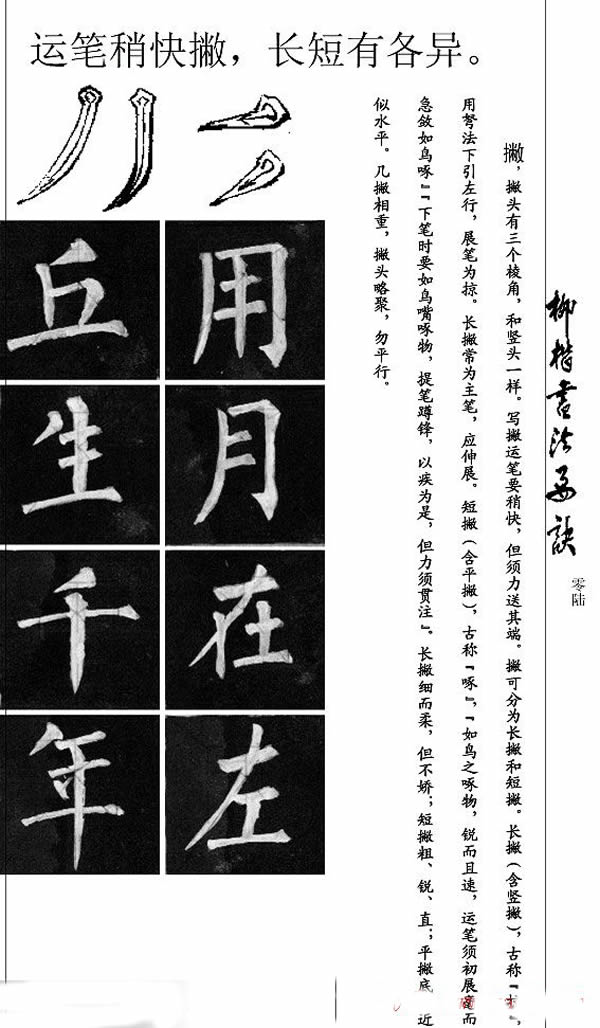 运笔稍快撇，长短有各异。
柳楷書法要訣
零陆
撇，撇头有三个棱角，和竖头一样。写撇运笔要稍快，但须力送其端。撇可分为长撇和短撇。长撇（含竖撇），古称『』，
用弩法下引左行，展笔为掠。长撇常为主笔，应伸展。短撇（含平撇），古称『啄』，『如鸟之啄物，锐而且速，运笔须初展毫而
急敛如鸟啄』『下笔时要如鸟嘴啄物，提笔蹲锋，以疾为是，但力须贯注』。长撇细而柔，但不娇；短撇粗、锐、直；平撇底近
似水平。几撇相重，撇头略聚，勿平行。
用
月
在
左
丘
生
千
年